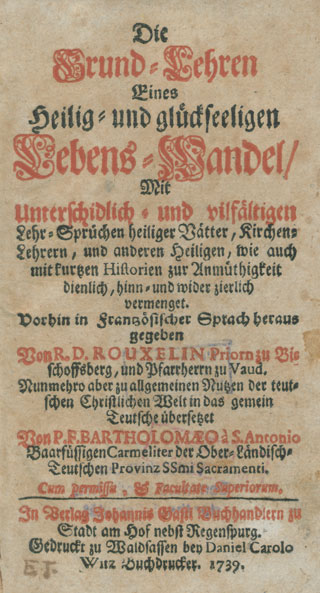 Die
Grund-Lehren
Eines
Heilig- und glückseeligen
Lebens-Wandel/
Mit
Unterschidlich- und vilfältigen
Lehr-Sprüchen heiliger Vätter, Kirchen-
Lehrern, und anderen Heiligen, wie auch
mit kurtzen Historien zur Anmüthigkeit
dienlich, hinn- und wider zierlich
vermenget.
Vorhin in Frantzösischer Sprach heraus
gegeben
Von R. D. ROUXELIN Priorn zu Bi-
schoffsberg, und Pfarrherrn zu Vaud.
Nunmehro aber zu allgemeinen Nutzen der teut-
schen Christlichen Welt in das gemein
Teutsche übersetzt
Von P. F. BARTHOLOMÆO à S. Antonio
Baarfüssigen Carmeliter der Ober-Ländisch-
Teutschen Provinz SSmi Sacramenti.
Cum permissu, & Facultate Superiorum.
In Verlag Johannis Gastl Buchhandlern zu
Stadt am Hof nebst Regenspurg.
Gedruckt zu Waldsassen bey Daniel Carolo
Witz Buchdrucker. 1739.